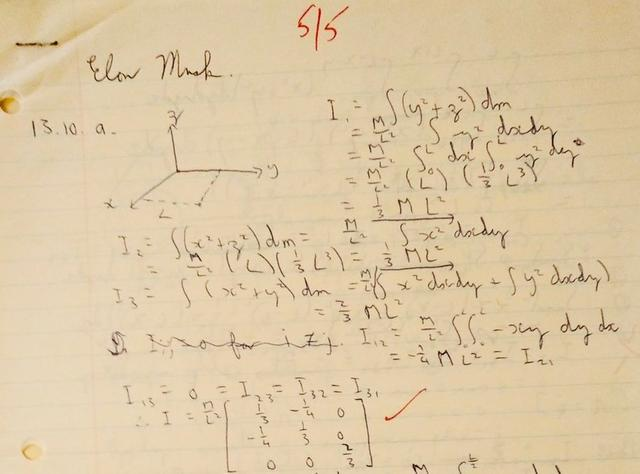 5/5
Elon Musk.
13.10. a.
z
y
x
L
I₁ = ∫(y²+z²) dm
= M/L² ∫ y² dxdy
= M/L² ∫₀ᴸ dx ∫₀ᴸ y² dy
= M/L² (L) (1/3 L³)
= 1/3 ML²
I₂ = ∫(x²+z²) dm = M/L² ∫ x² dxdy
= M/L² (L)(1/3 L³) = 1/3 ML²
I₃ = ∫(x²+y²) dm = M/L² (∫ x² dxdy + ∫ y² dxdy)
= 2/3 ML²
I₁₂ = M/L² ∫₀ᴸ ∫₀ᴸ -xy dy dx
= -1/4 ML² = I₂₁
I₁₃ = 0 = I₂₃ = I₃₂ = I₃₁
∴ I = M/L² [ 1/3 -1/4 0
-1/4 1/3 0
0 0 2/3 ]